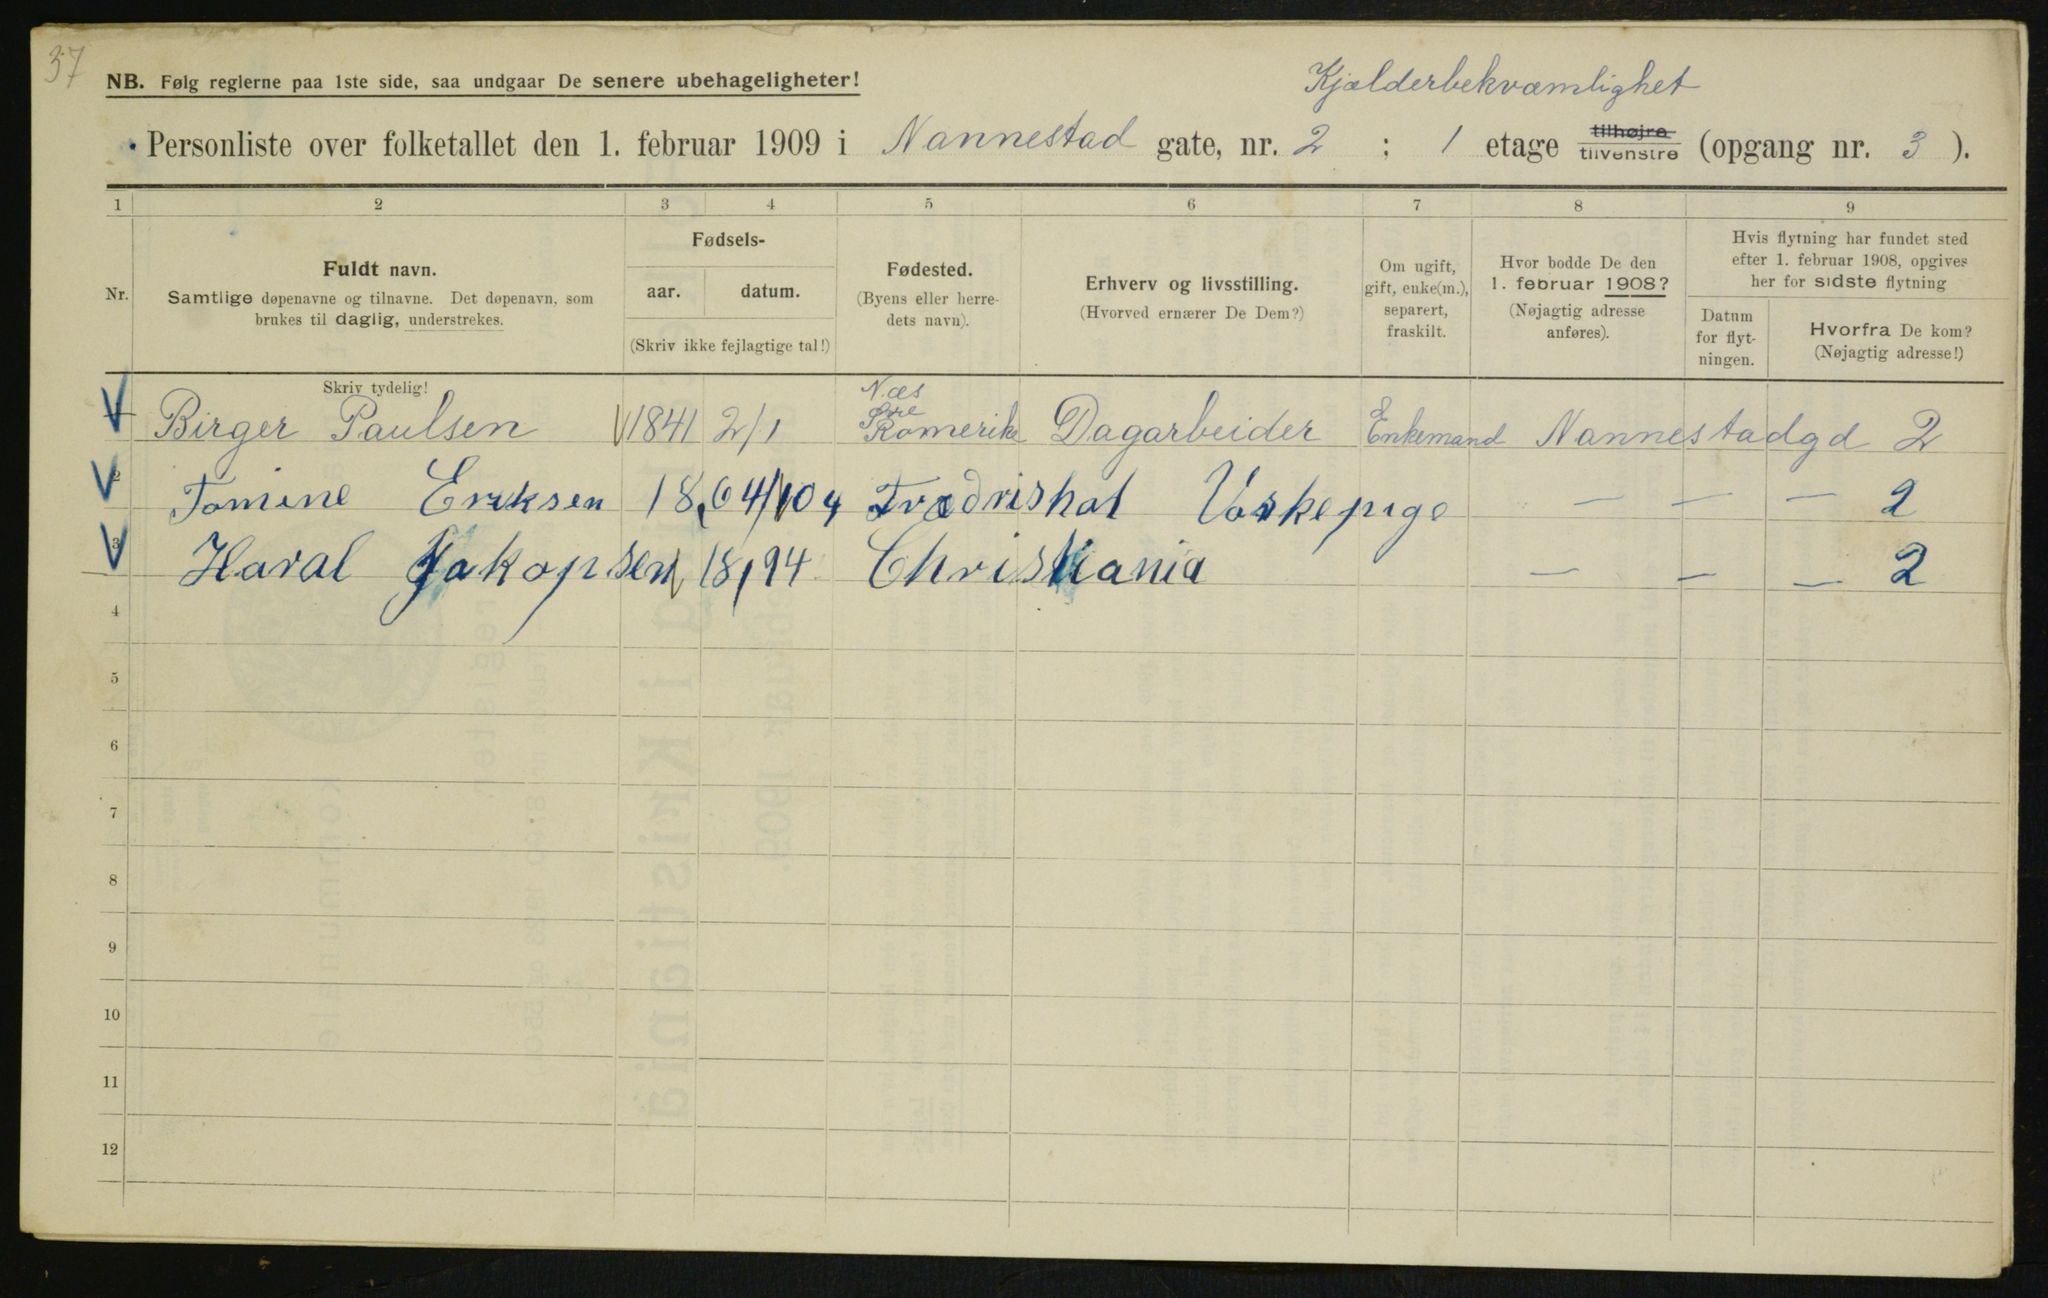 37
NB. Følg reglerne paa 1ste side, saa undgaar De senere ubehageligheter!
Kjælderbekvæmlighet
Personliste over folketallet den 1. februar 1909 i Nannestad gate, nr. 2 ; 1 etage tilhøjre tilvenstre (opgang nr. 3 ).
1 2 3 4 5 6 7 8 9
Nr.
Fuldt navn.
Samtlige døpenavne og tilnavne. Det døpenavn, som
brukes til daglig, understrekes.
Fødsels-
aar. datum.
(Skriv ikke fejlagtige tal!)
Fødested.
(Byens eller herre-
dets navn).
Erhverv og livsstilling.
(Hvorved ernærer De Dem?)
Om ugift,
gift, enke(m.),
separert,
fraskilt.
Hvor bodde De den
1. februar 1908?
(Nøjagtig adresse
anføres).
Hvis flytning har fundet sted
efter 1. februar 1908, opgives
her for sidste flytning
Datum
for flyt-
ningen.
Hvorfra De kom?
(Nøjagtig adresse!)
Skriv tydelig!
1 Birger Paulsen 1841 2/1 Næs Øvre Romerike Dagarbeider Enkemand Nannestadgd 2
2 Tomine Eriksen 18,64 Fredrishal Vaskepige — — — 2
3 Haral Jakopsen 18,94 Christiania — — — 2
4
5
6
7
8
9
10
11
12